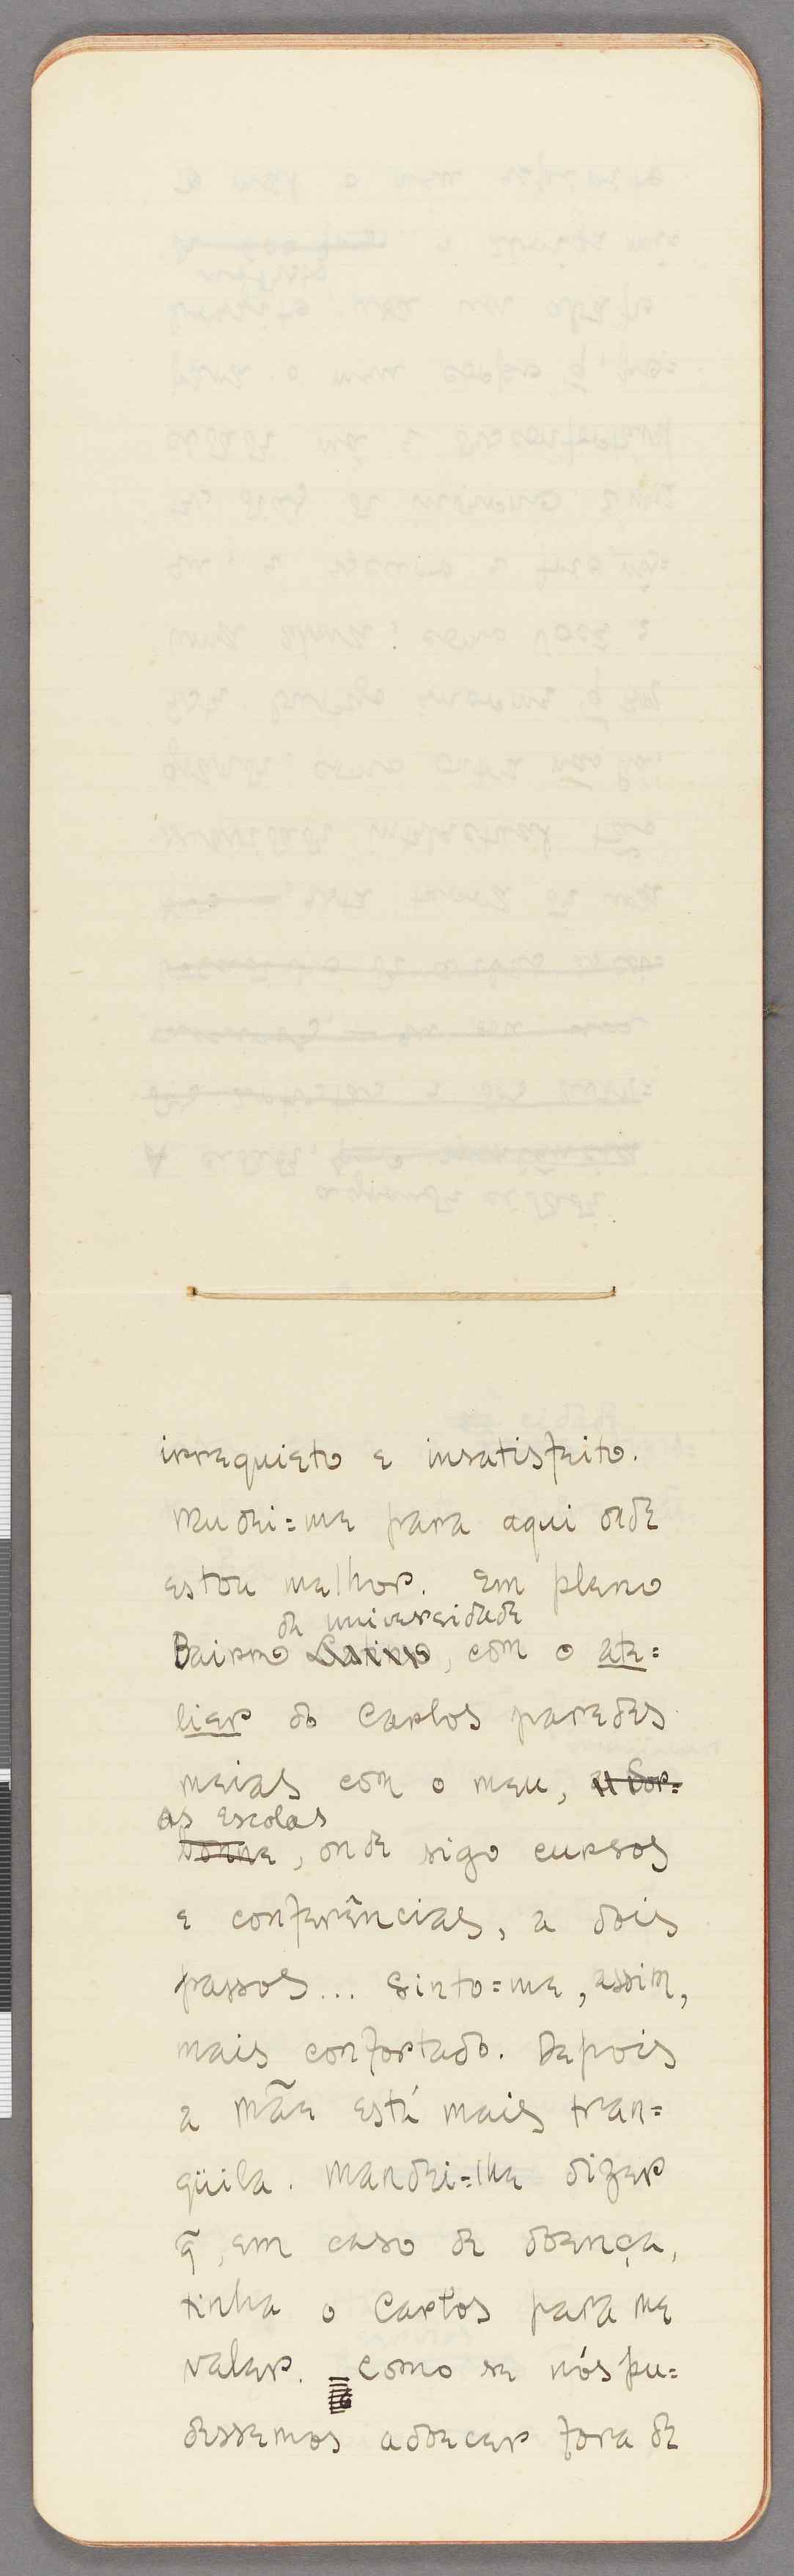 irrequieto e insatisfeito.
Mudei=me para aqui onde
estou melhor. Em pleno
da universidade
Bairro Latino, com o ate=
lier do Carlos paredes
meias com o meu, a Sor=
as escolas
bonne, onde sigo cursos
e conferências, a dois
passos... Sinto=me, assim,
mais confortado. Depois
a mãe está mais tran=
qüila. Mandei=lhe dizer
q̃, em caso de doença,
tinha o Carlos para me
valer. Como se nós pu=
dessemos adoecer fora de